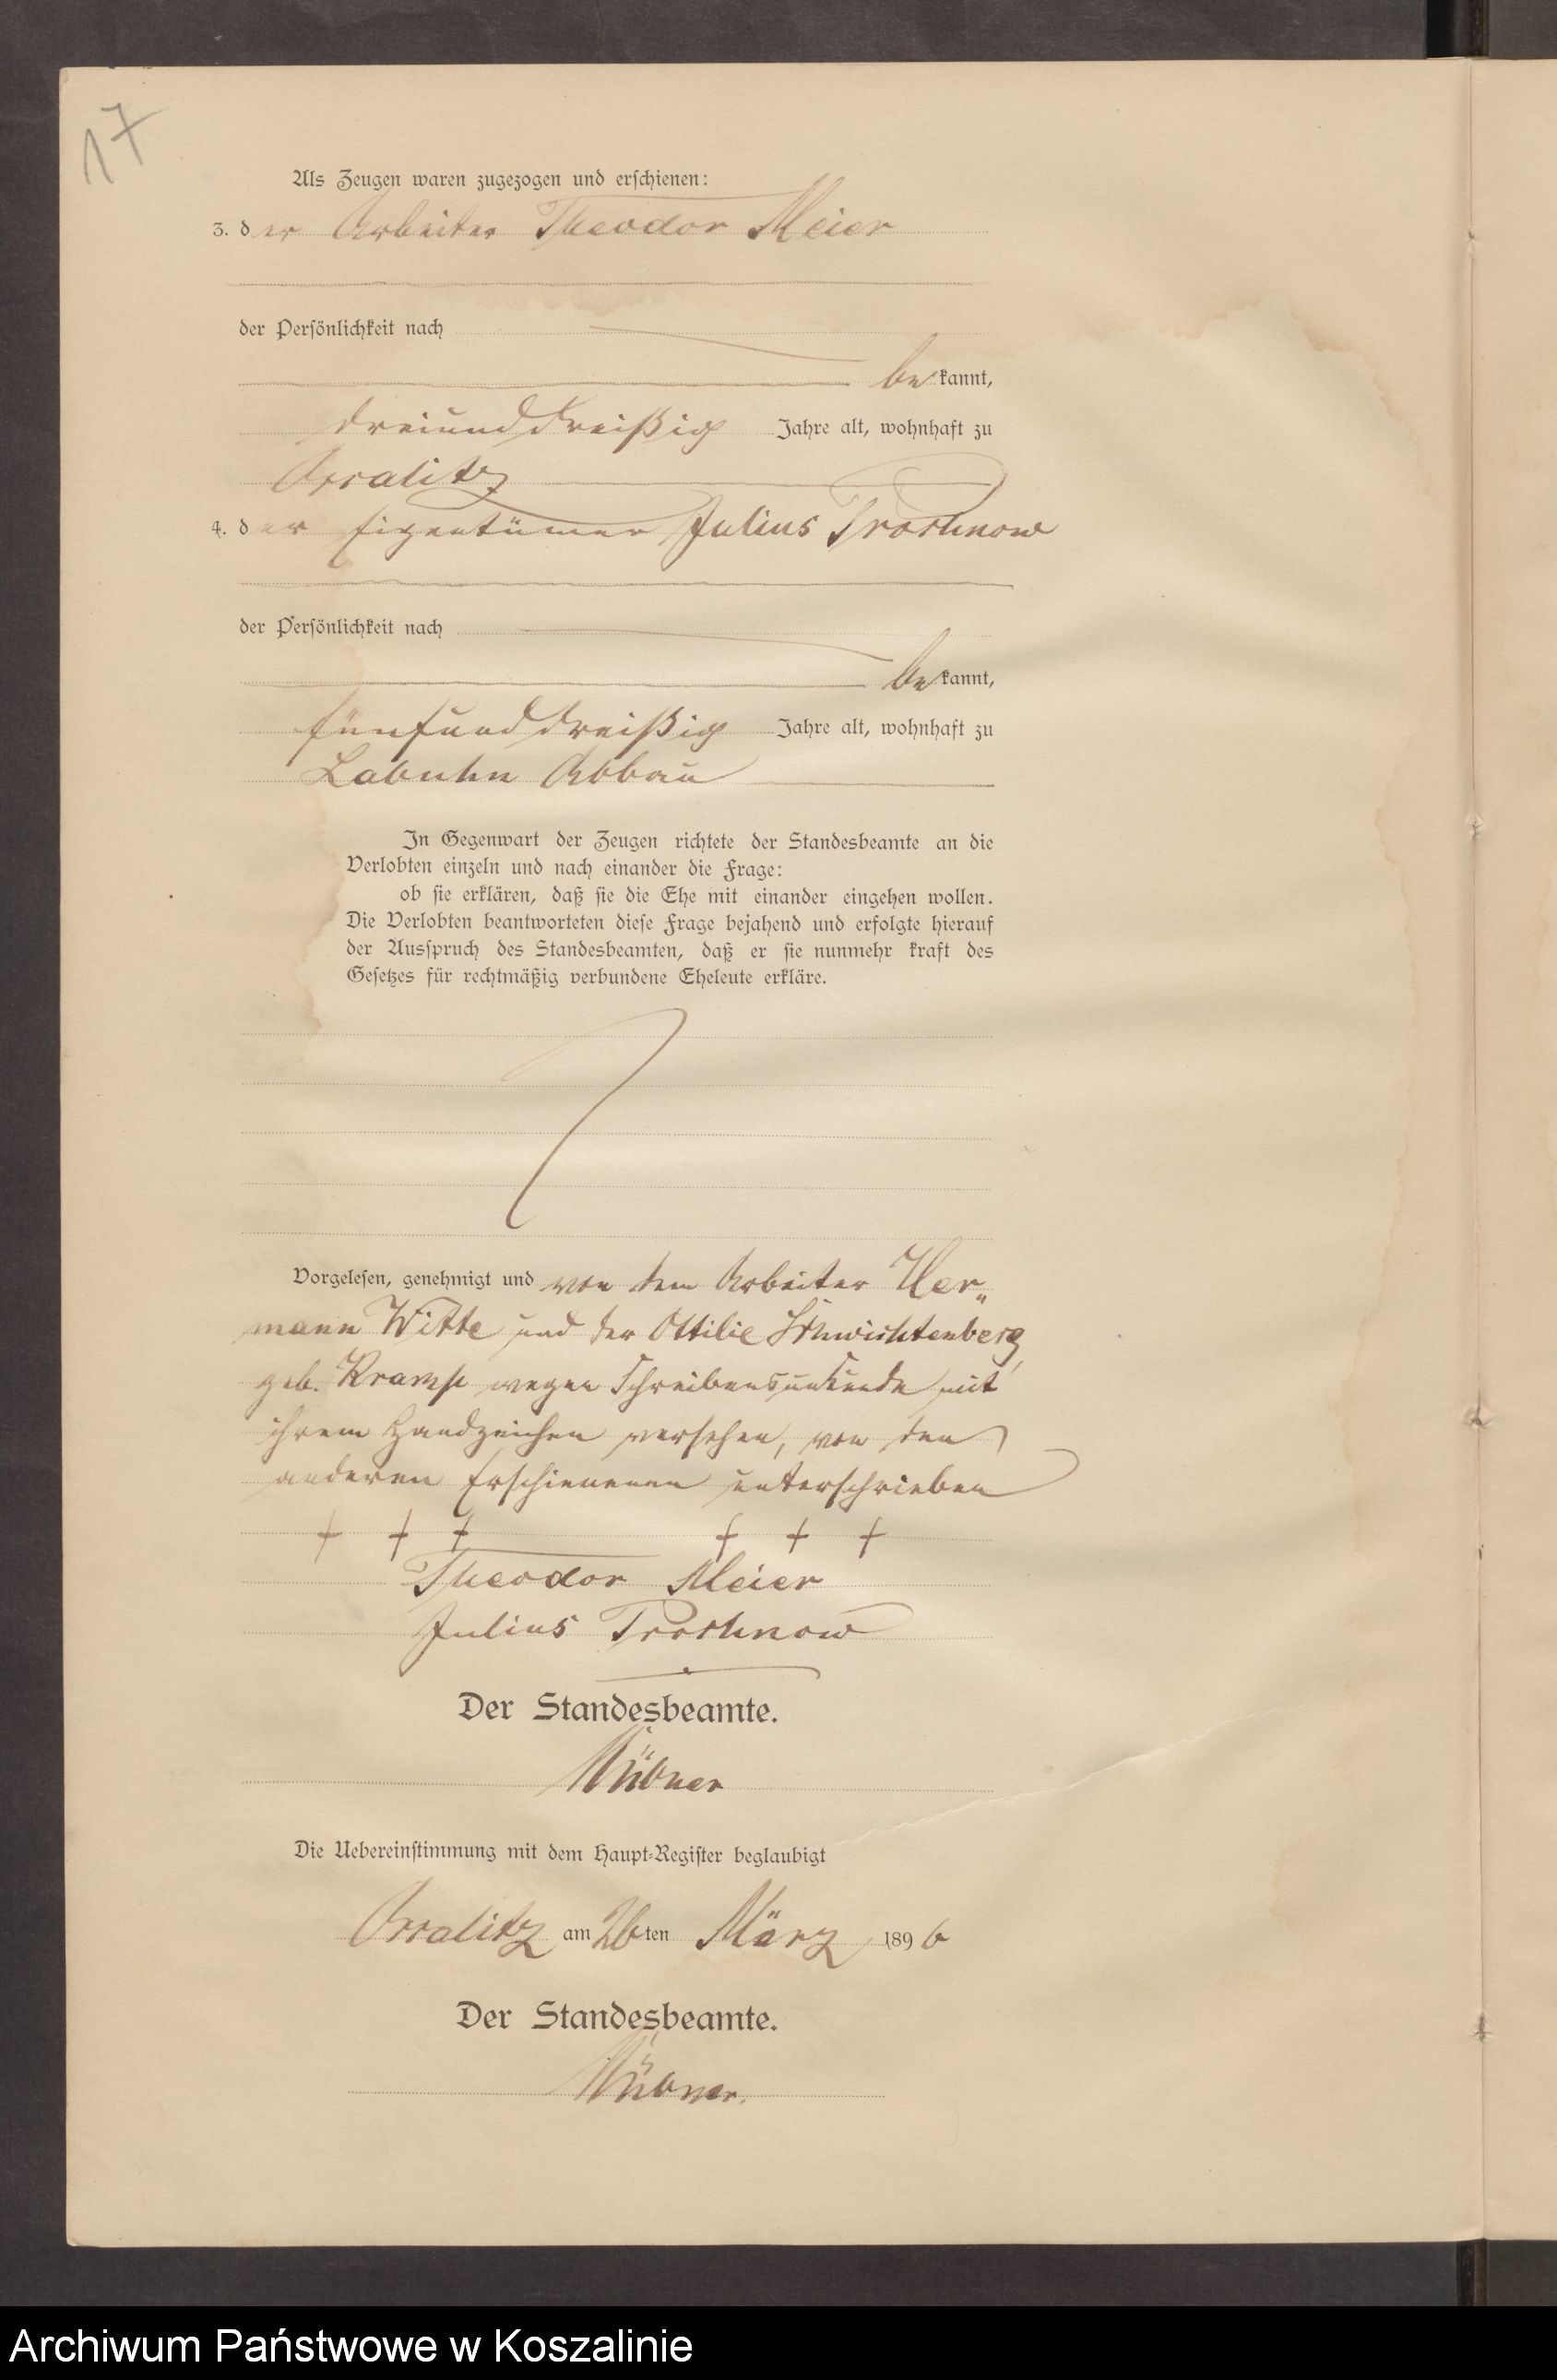 17
Als Zeugen waren zugezogen und erschienen:
3. der Arbeiter Theodor Meier
der Persönlichkeit nach
bekannt,
dreiunddreißig Jahre alt, wohnhaft zu
4. der Eigentümer Julius Prochnow
der Persönlichkeit nach
bekannt,
fünfunddreißig Jahre alt, wohnhaft zu
Labuhn Abbau
In Gegenwart der Zeugen richtete der Standesbeamte an die
Verlobten einzeln und nach einander die Frage:
ob sie erklären, daß sie die Ehe mit einander eingehen wollen.
Die Verlobten beantworteten diese Frage bejahend und erfolgte hierauf
der Ausspruch des Standesbeamten, daß er sie nunmehr kraft des
Gesetzes für rechtmäßig verbundene Eheleute erkläre.
Vorgelesen, genehmigt und von dem Arbeiter Her„
mann Witte und der Ottilie Schwichtenberg
geb. Kramp wegen Schreibensunkunde mit
ihrem Handzeichen versehen, von den
anderen Erschienenen unterschrieben
+ + + + + +
Theodor Meier
Julius Prochnow
Der Standesbeamte.
Die Uebereinstimmung mit dem Haupt-Register beglaubigt
am 26ten März 1896
Der Standesbeamte.
Archiwum Państwowe w Koszalinie